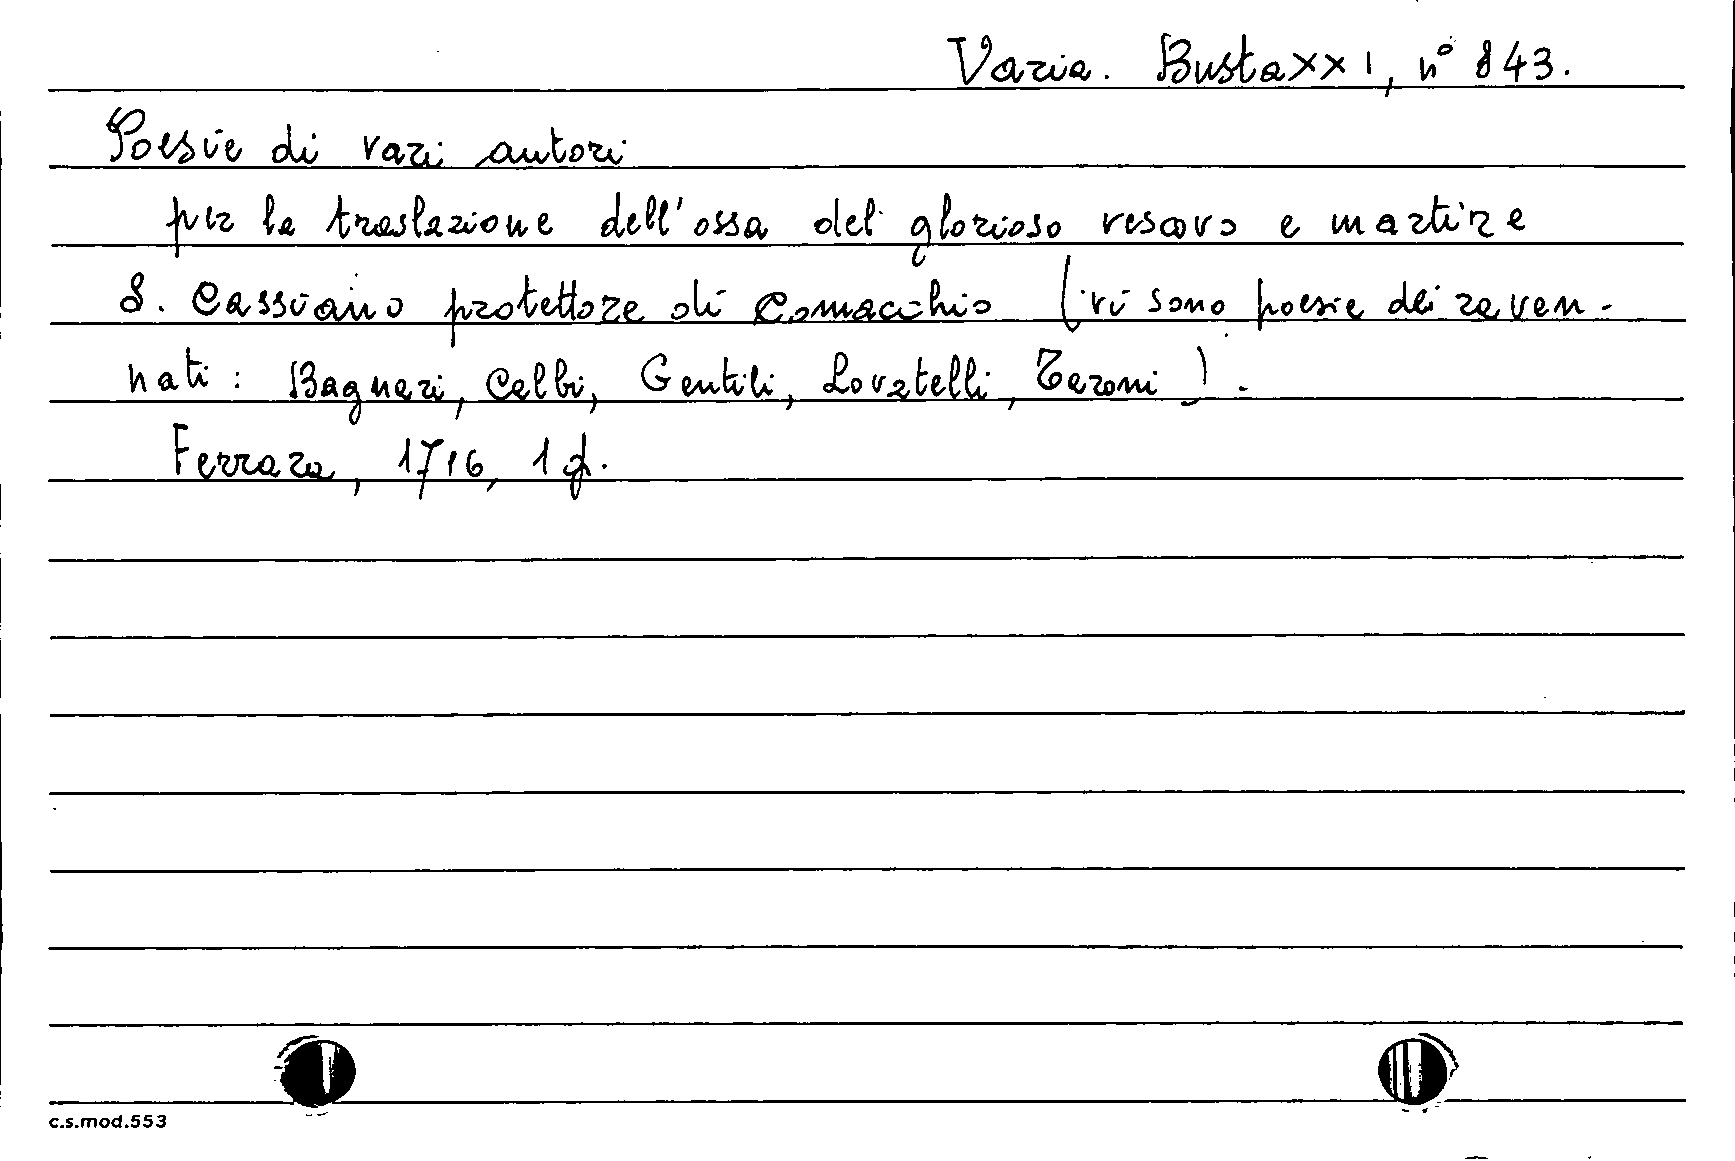 Varia. Busta XXI, n° 843.
Poesie di vari autori
per la traslazione dell'ossa del glorioso vescovo e martire
S. Cassiano protettore di Comacchio (vi sono poesie dei raven-
nati: Bagnari, Calbi, Gentili, Lovatelli, Zaroni).
Ferrara, 1716, 1 f.
c.s.mod.553